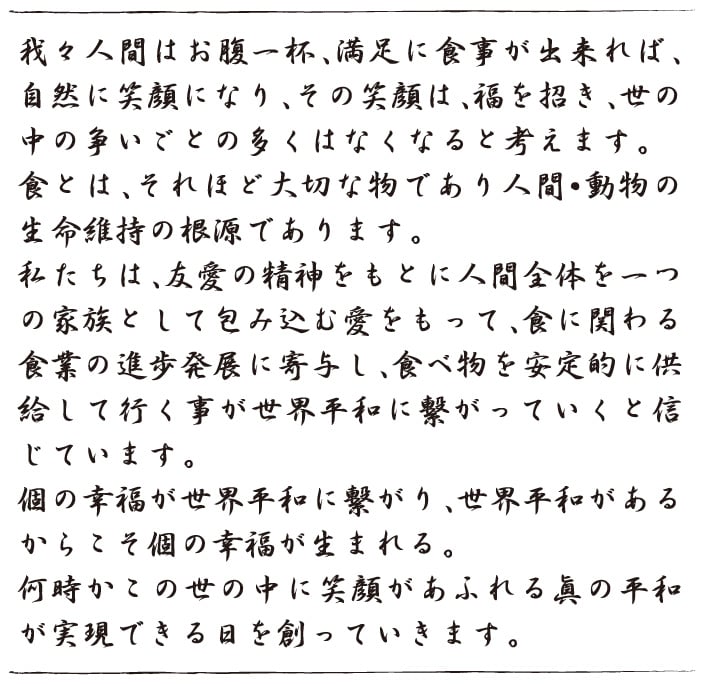 我々人間はお腹一杯、満足に食事が出来れば、
自然に笑顔になり、その笑顔は、福を招き、世の
中の争いごとの多くはなくなると考えます。
食とは、それほど大切な物であり人間・動物の
生命維持の根源であります。
私たちは、友愛の精神をもとに人間全体を一つ
の家族として包み込む愛をもって、食に関わる
食業の進歩発展に寄与し、食べ物を安定的に供
給して行く事が世界平和に繋がっていくと信
じています。
個の幸福が世界平和に繋がり、世界平和がある
からこそ個の幸福が生まれる。
何時かこの世の中に笑顔があふれる眞の平和
が実現できる日を創っていきます。